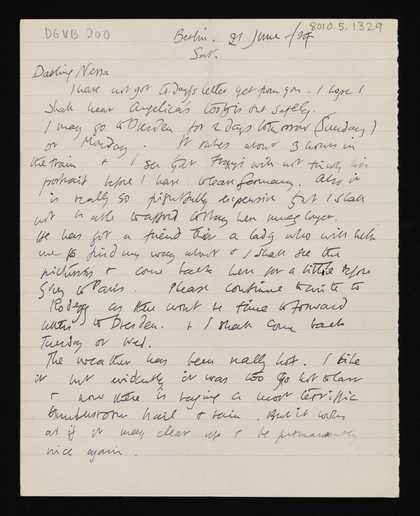 DGVB 200
8010.5.1329
Berlin. 21 June
Sat.
Darling Nessa
I have not got today's letter yet from you. I hope I
shall hear Angelica's tooth is out safely.
I may go to Dresden for 2 days tomorrow (Sunday)
or Monday. It takes about 3 hours in
the train + I see that will not finish his
portrait before I have to leave Germany. Also it
is really so frightfully expensive that I shall
not be able to afford to stay here much longer.
He has got a friend there a lady who will help
me to find my way about + I shall see the
pictures + come back here for a little before
going to Paris. Please continue to write to
as there wont be time to forward
letters to Dresden. + I shall come back
Tuesday or Wed.
The weather has been really hot. I like
it but evidently it was too hot to last
+ now there is raging a most terrific
thunderstorm hail + rain. But it looks
as if it may clear up + be permanently
nice again.